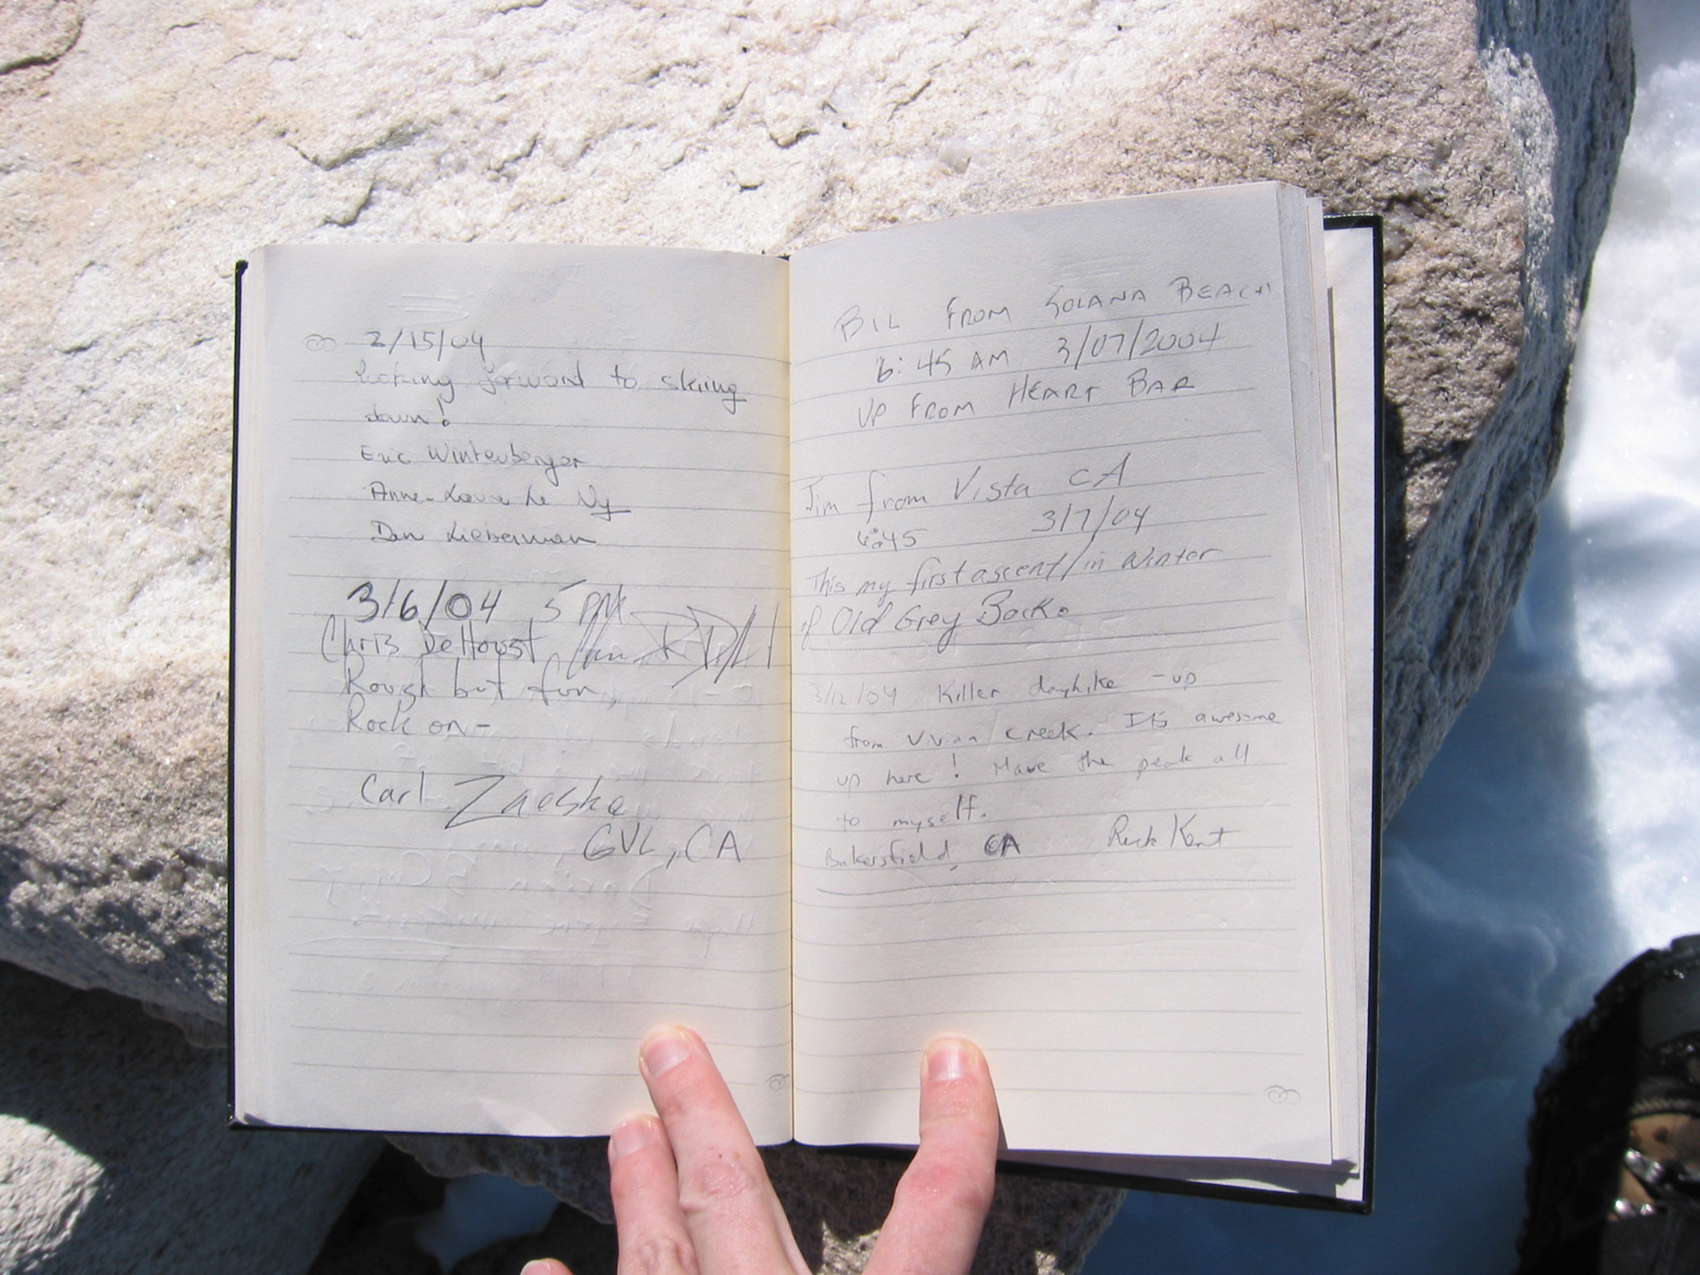 2/15/04
looking forward to skiing
down!
Eric Winterberger
Anne-Laure Le Ny
Dan Lieberman
3/6/04 5 PM
Chris DeHoust
Rough but fun,
Rock on-
Carl Zaeske
GVL, CA
BIL FROM SOLANA BEACH
6:45 AM 3/07/2004
UP FROM HEART BAR
Jim from Vista CA
6:45 3/7/04
This my first ascent/in Winter
of Old Grey Back.
3/12/04 Killer dayhike - up
from Vivian Creek. It's awesome
up here! Have the peak all
to myself.
Bakersfield, CA Rick Kent